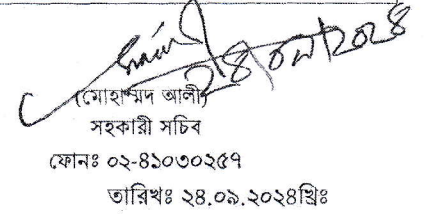 ২৪/০৯/২০২৪
(মোহাম্মদ আলী)
সহকারী সচিব
ফোনঃ ০২-৪১০৩০২৫৭
তারিখঃ ২৪.০৯.২০২৪খ্রিঃ